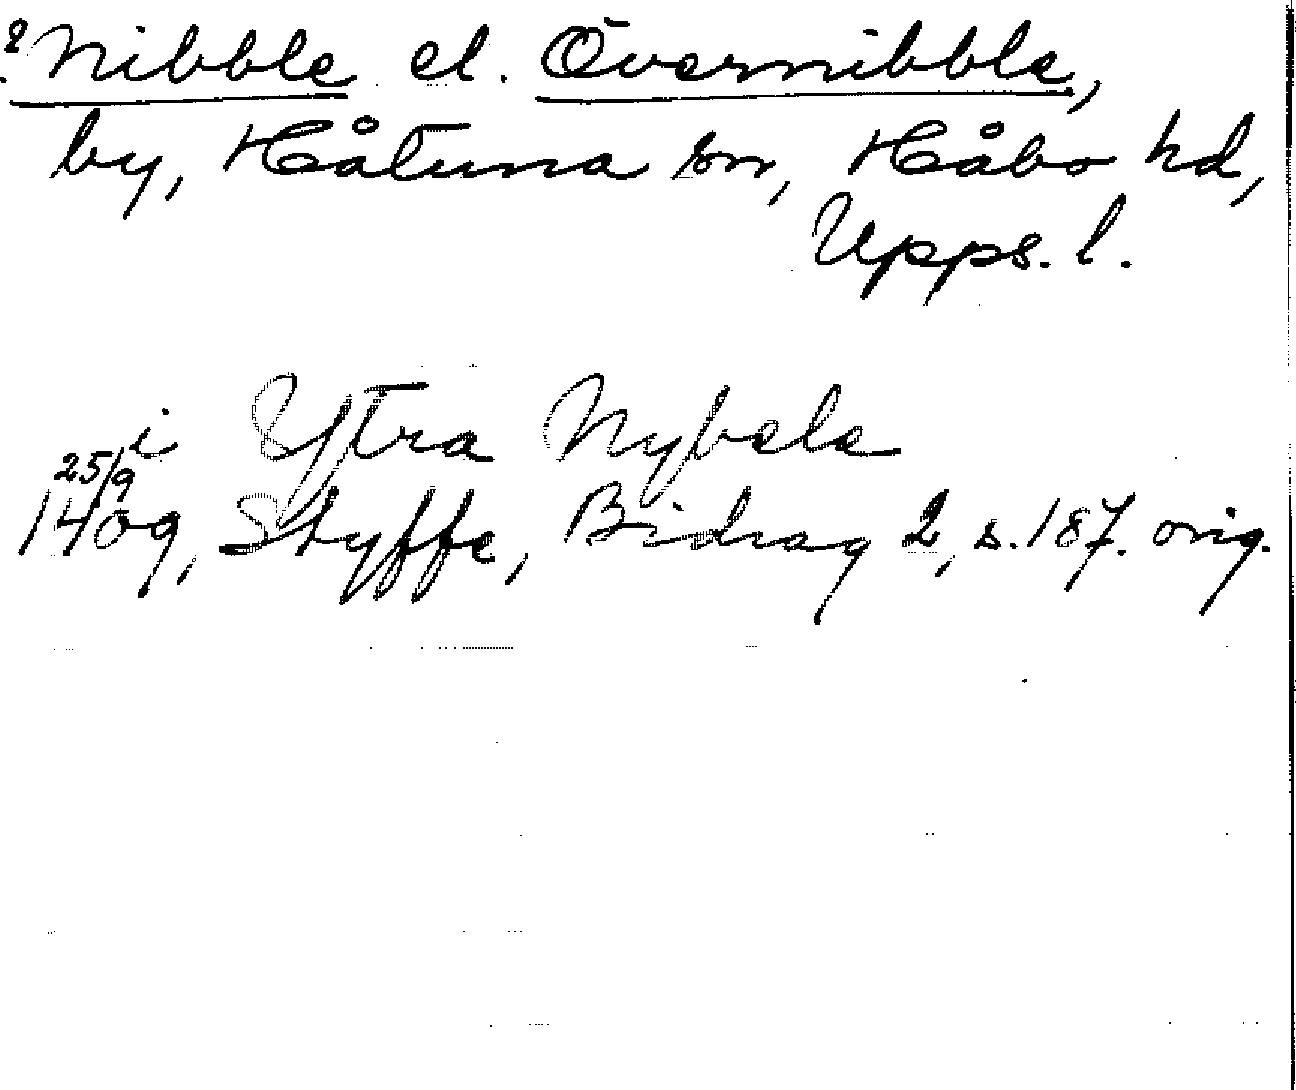 ? Nibble el. Övernibble,
by, Håtuna sn, Håbo hd,
Upps. l.
i Ytra Nybele
25/9
1409, Styffe, Bidrag 2, s. 187. orig.